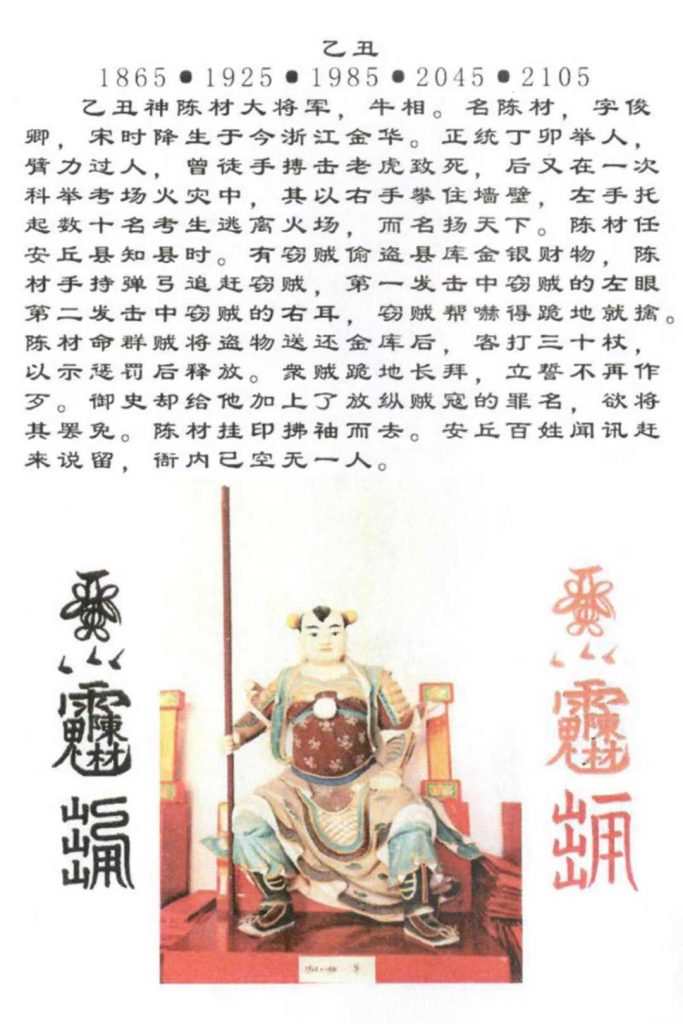 乙丑
1865●1925●1985●2045●2105
乙丑神陈材大将军，牛相。名陈材，字俊
卿，宋时降生于今浙江金华。正统丁卯举人，
臂力过人，曾徒手搏击老虎致死，后又在一次
科举考场火灾中，其以右手攀住墙壁，左手托
起数十名考生逃离火场，而名扬天下。陈材任
安丘县知县时。有窃贼偷盗县库金银财物，陈
材手持弹弓追赶窃贼，第一发击中窃贼的左眼
第二发击中窃贼的右耳，窃贼帮嚇得跪地就擒。
陈材命群贼将盗物送还金库后，客打三十杖，
以示惩罚后释放。衆贼跪地长拜，立誓不再作
歹。御史却给他加上了放纵贼寇的罪名，欲将
其罢免。陈材挂印拂袖而去。安丘百姓闻讯赶
来说留，衙内已空无一人。